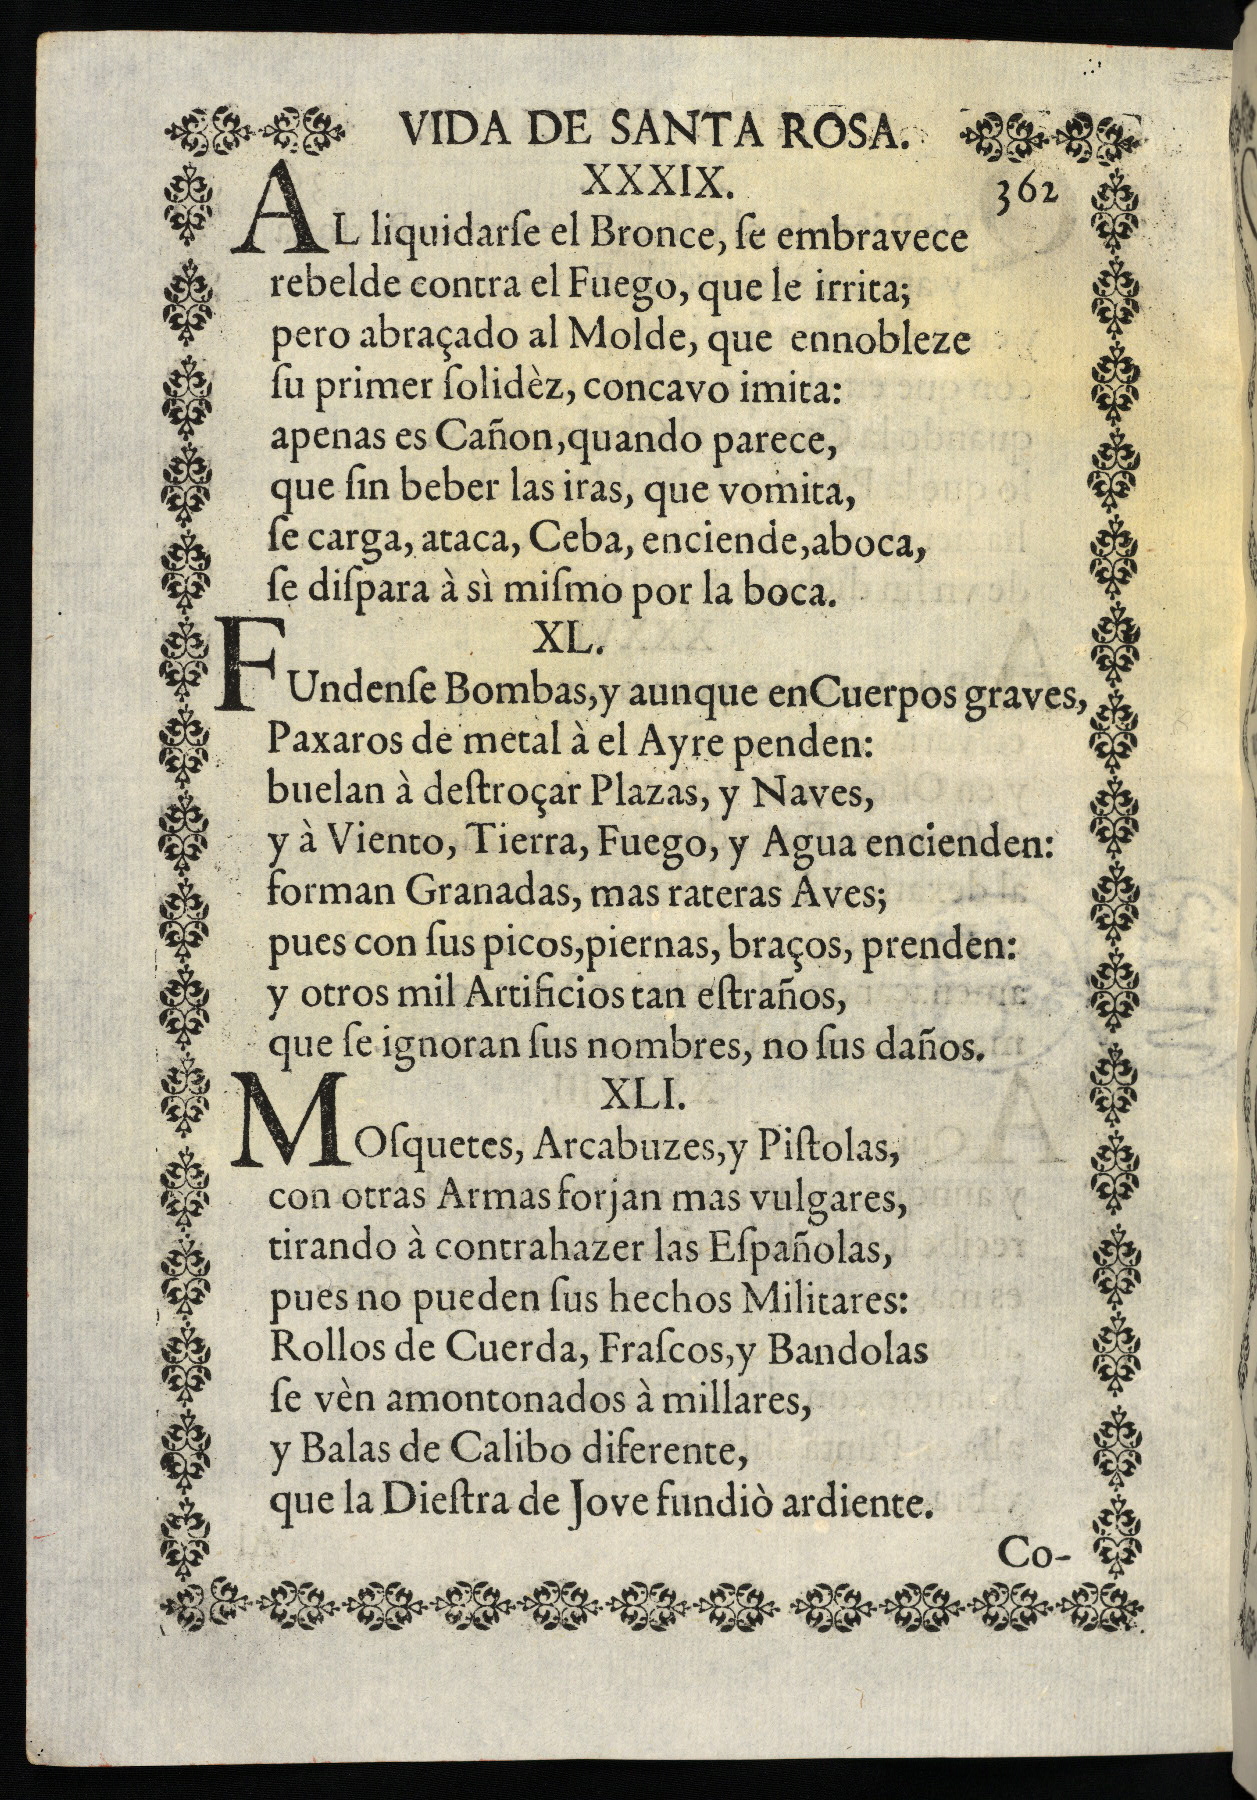 VIDA DE SANTA ROSA.
XXXIX. 362
AL liquidarſe el Bronce, ſe embravece
rebelde contra el Fuego, que le irrita;
pero abraçado al Molde, que ennobleze
ſu primer ſolidèz, concavo imita:
apenas es Cañon,quando parece,
que ſin beber las iras, que vomita,
ſe carga, ataca, Ceba, enciende,aboca,
ſe diſpara à sì miſmo por la boca.
XL.
FUndenſe Bombas,y aunque enCuerpos graves,
Paxaros de metal à el Ayre penden:
buelan à deſtroçar Plazas, y Naves,
y à Viento, Tierra, Fuego, y Agua encienden:
forman Granadas, mas rateras Aves;
pues con ſus picos,piernas, braços, prenden:
y otros mil Artificios tan eſtraños,
que ſe ignoran ſus nombres, no ſus daños.
XLI.
MOſquetes, Arcabuzes,y Piſtolas,
con otras Armas forjan mas vulgares,
tirando à contrahazer las Eſpañolas,
pues no pueden ſus hechos Militares:
Rollos de Cuerda, Fraſcos,y Bandolas
ſe vèn amontonados à millares,
y Balas de Calibo diferente,
que la Dieſtra de Jove fundiò ardiente.
Co-